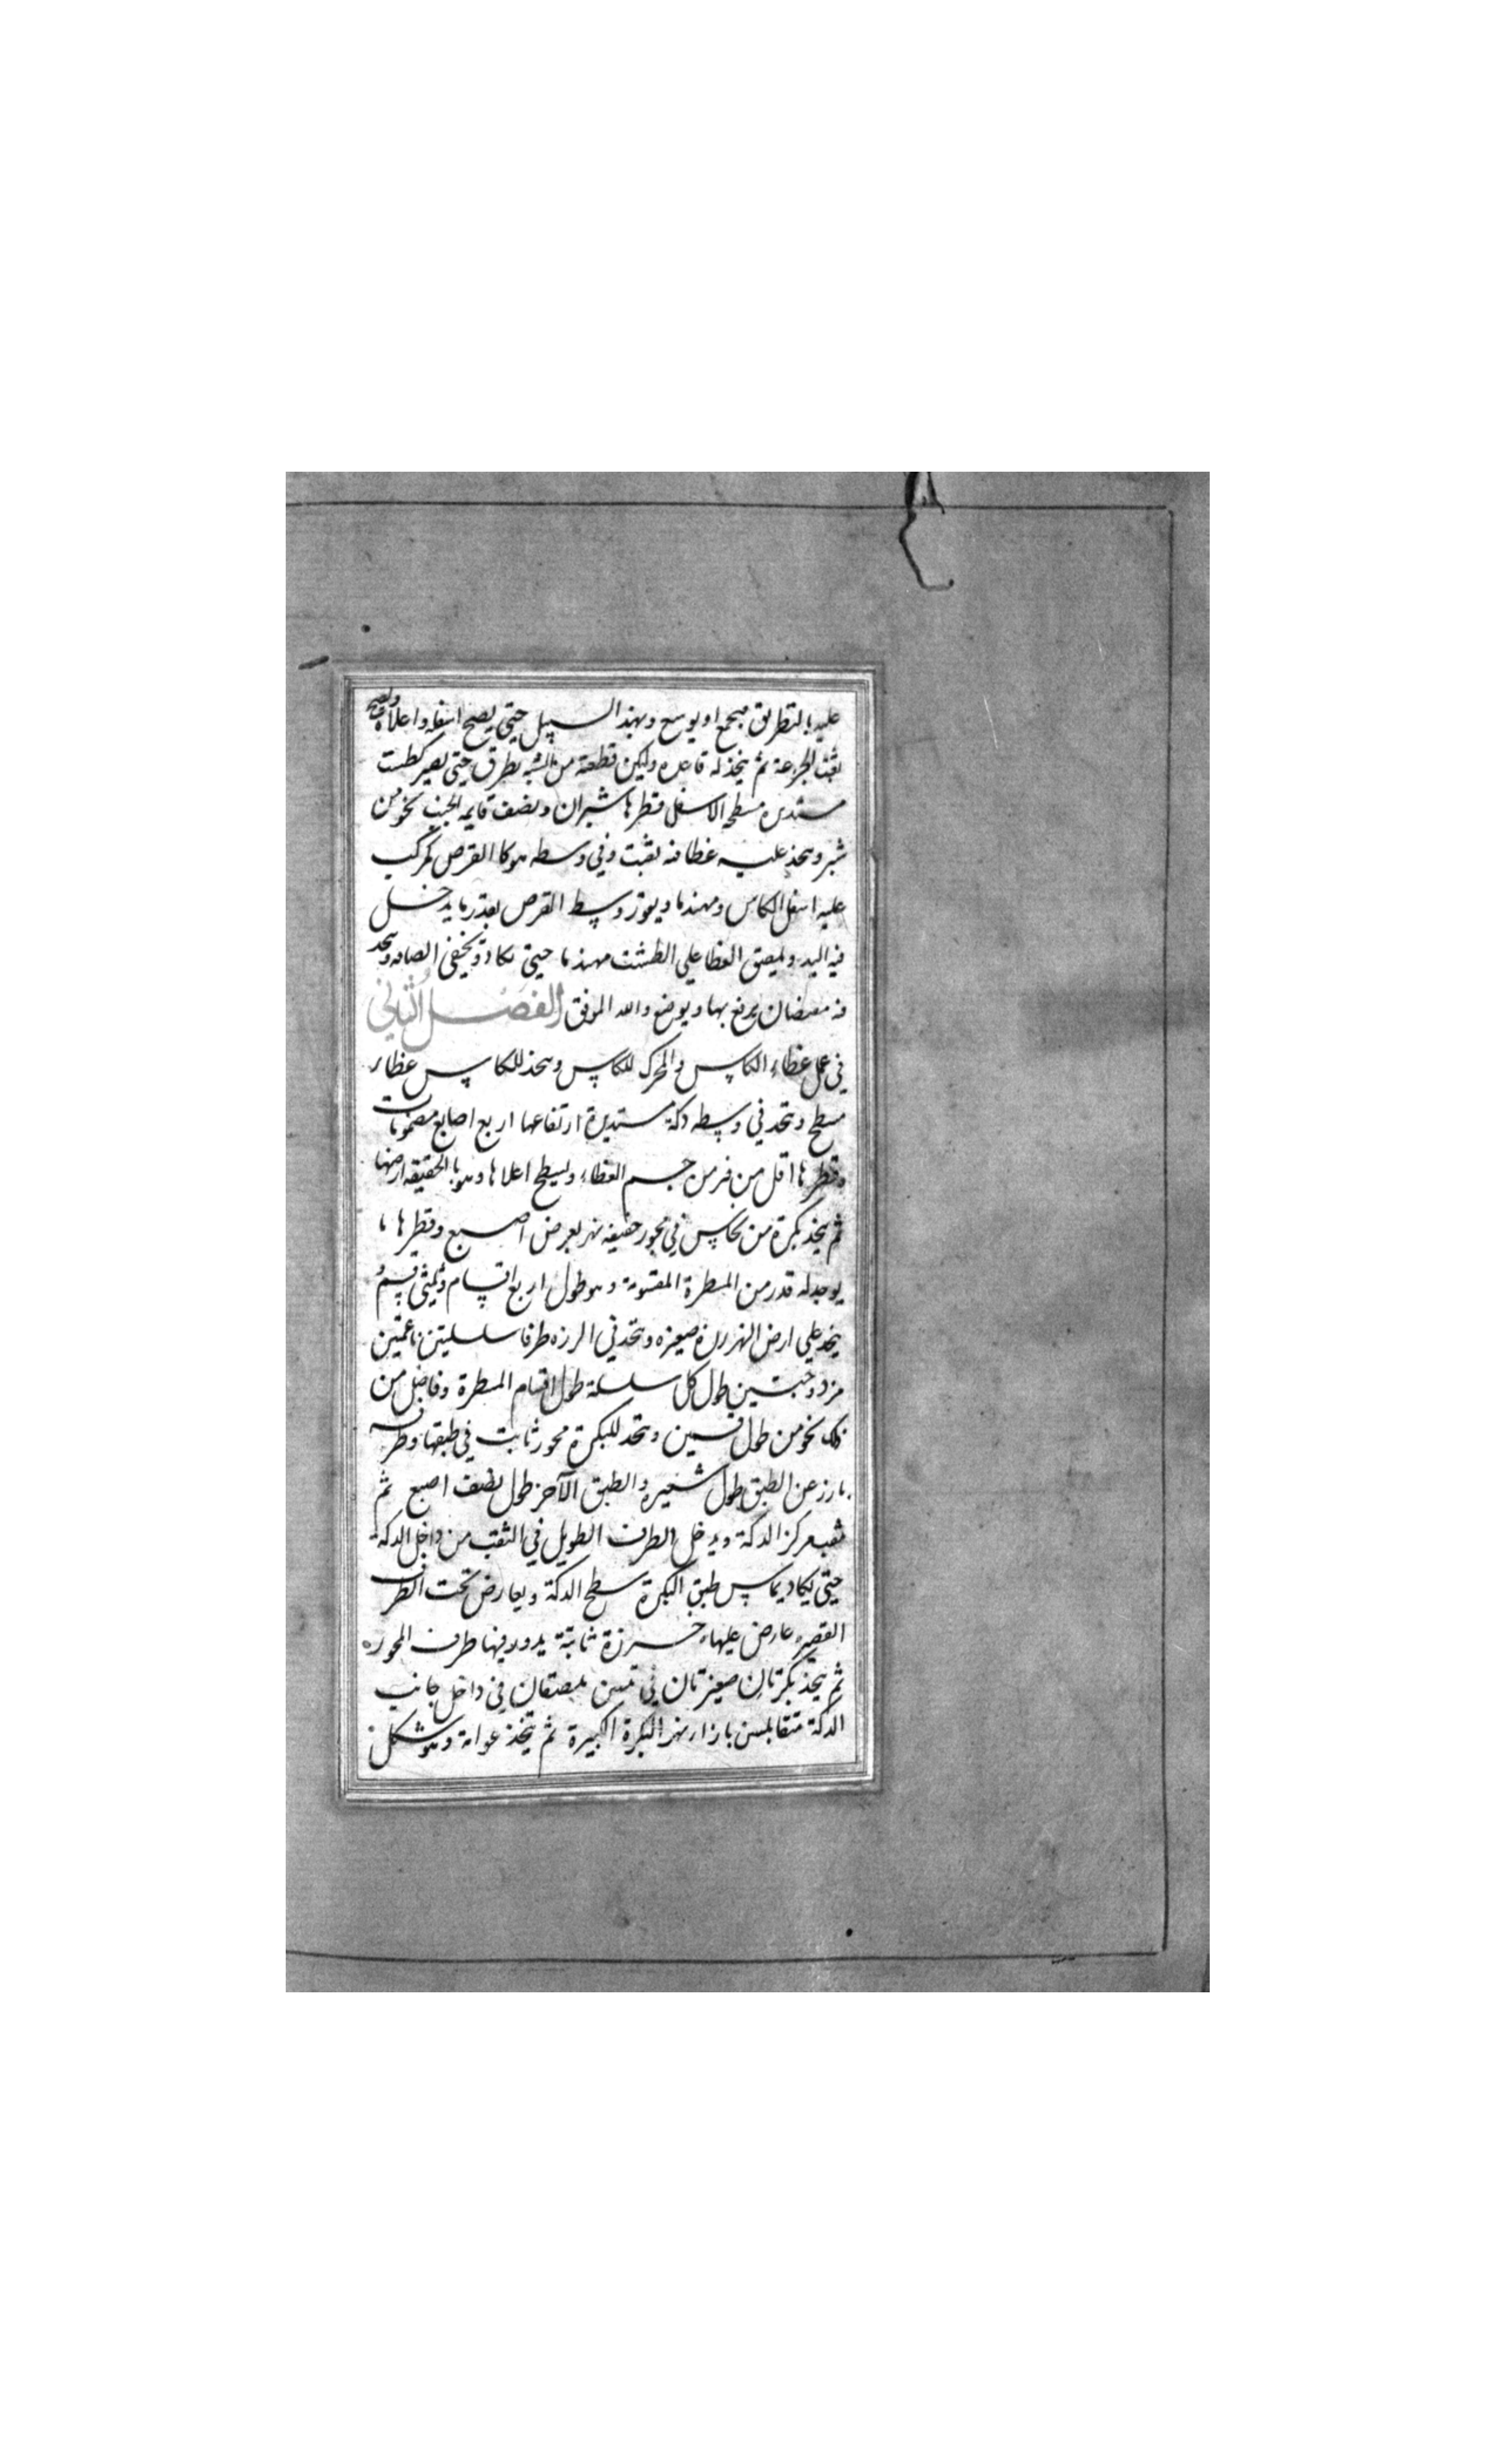 عليه بالتطريق مجمع او يوسع وبهذا السبيل حتى يصح اسفله واعلاه ويصح
ثقب الجزعة ثم يتخذ له قاعده وليكن قطعة من الشبه يطرق حتى يصير كطست
مستديره مسطح الاسفل قطرها شبران ونصف قايمه الجنب نحو من
شبر ويتخذ عليه غطا فيه ثقبت وفي وسطه هوكا القرص ليركب
عليه اسفل الكاس ومهندما ويقور وسط القرص بقدر ما يدخل
فيه اليد ويلصق الغطا على الطشت مهندما حتى يكاد يخفى الصاقه ويتخذ
فيه مقبضان يرفع بها ويوضع والله الموفق الفصل الثاني
في عمل غطاء الكاس والمحرك للكاس ويتخذ للكاس غطاء
مسطح ويتخذ في وسطه دكة مستديرة ارتفاعها اربع اصابع مضمومات
وقطرها اقل من فر من جسم الغطاء ويسطح اعلاها وهو بالحقيقه ارضها
ثم يتخذ بكرة من نحاس في محور خفيفه نهر بعرض اصبع وقطرها ما
يوجد له قدر من المسطرة المقسومة وهو طول اربع اقسام وثلثي قسم ثم
يتخذ على ارض النهر رزة صغيره ويتخذ في الرزه طرفا سلسلتين ناعمتين
مزدوجتين طول كل سلسلة طول اقسام المسطرة وفاضل من
ذلك نحو من طول قسمين ويتخذ للبكرة محور ثابت في طبقها وطرفه
بارز عن الطبق طول شعيره والطبق الآخر طول نصف اصبع ثم
ثقب مركز الدكة ويدخل الطرف الطويل في الثقب من داخل الدكة
حتى يكاد يماس طبق البكرة سطح الدكة ويعارض تحت الطرف
القصير عارض عليهاء خرزة ثابتة يدور فيها طرف المحوره
ثم يتخذ بكرتان صغيرتان في بيتين ملصقان في داخل جانب
الدكة متقابلين بازاء نهر البكرة الكبيرة ثم يتخذ عوامة وهو شكل